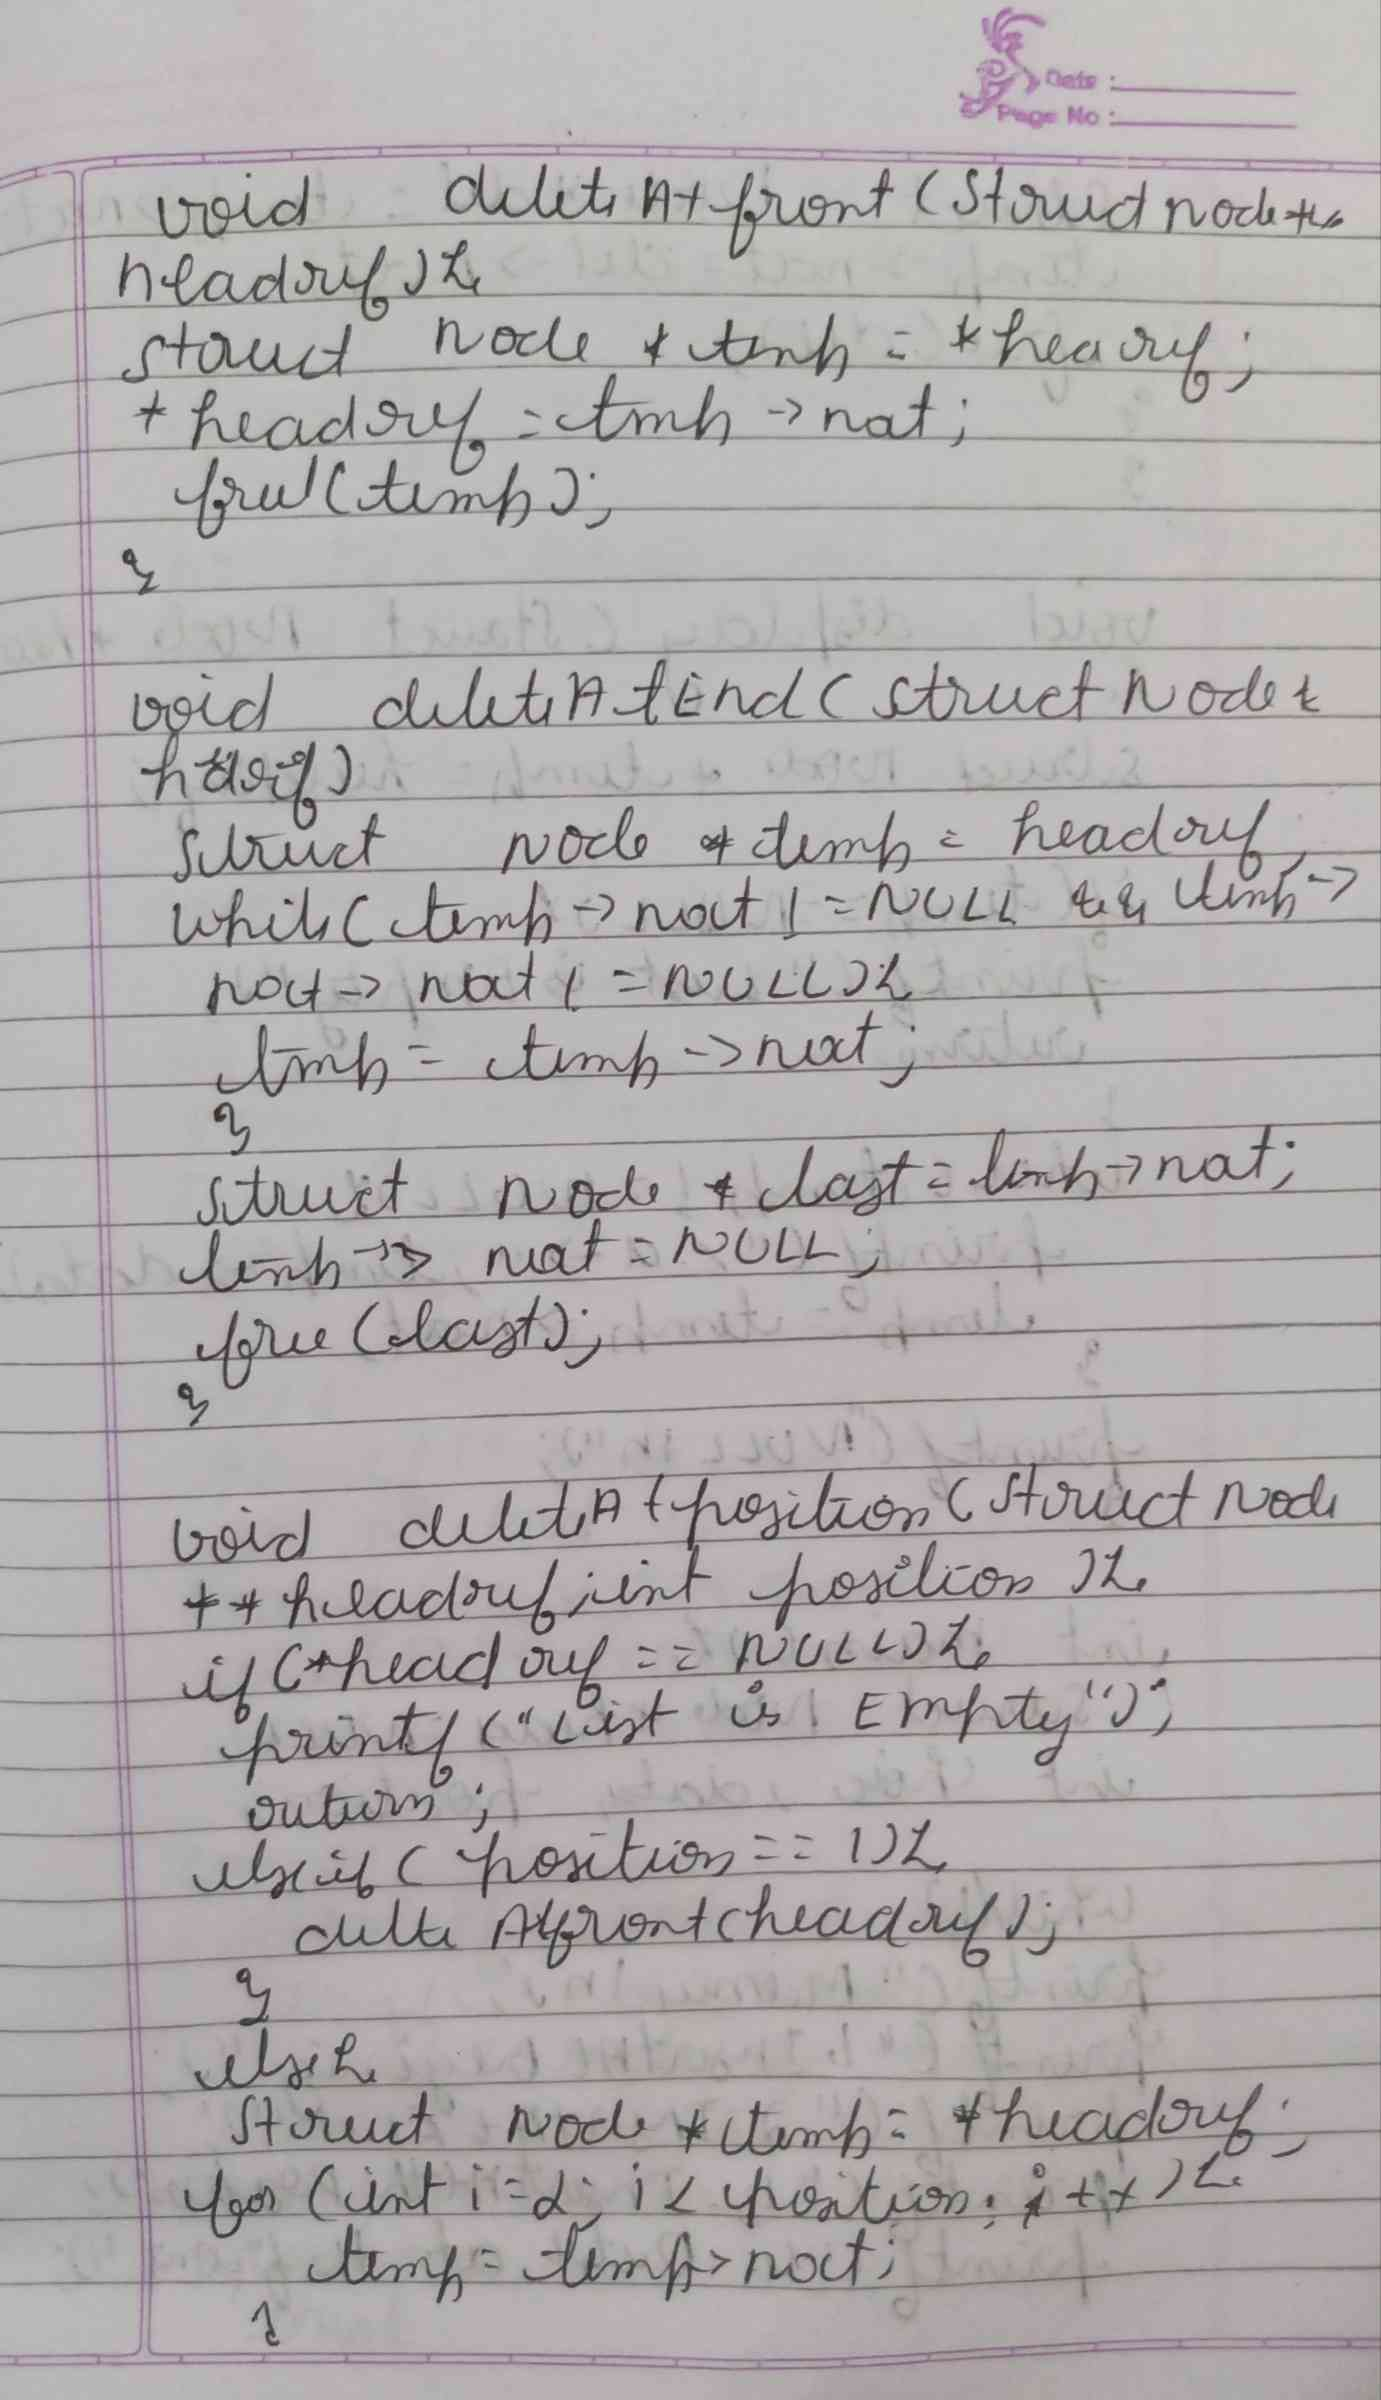 Date :
Page No :
void deleteAtfront (Struct node **
headref ){
struct Node * temp = *hearef ;
*headref = temp -> next ;
free (temp );
}
void deleteAtEnd ( struct Node *
struct Node * temp = headref
while ( temp -> next ! = NULL && temp ->
next -> next ! = NULL ){
temp = temp -> next ;
}
struct Node * last = temp -> next ;
temp -> next = NULL ;
free (last) ;
}
void deleteAtposition ( Struct Node
** headref , int position ){
if (*head ref == NULL ){
printf ("List is Empty") ;
return ;
else if ( position == 1){
delete Atfront (headref ) ;
}
else {
Struct Node * temp = *headref ;
for (int i = 2 ; i < position ; i ++ ){
temp = temp-> next ;
}